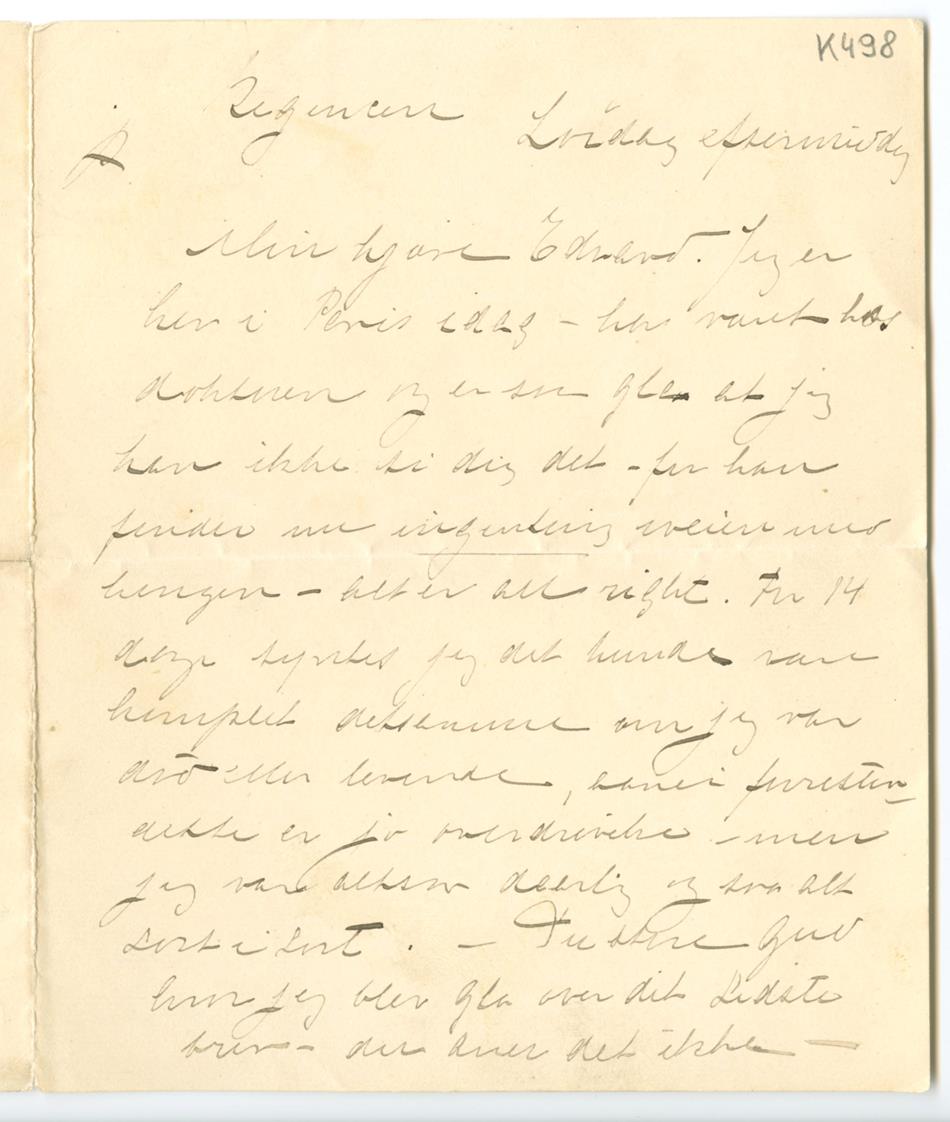 K498
Regencen Lördag eftermiddg
Min kjære Edvard. Jeg er
her i Paris idag – har været hos
doktoren og er saa gla at jeg
kan ikke si dig det – for han
finder nu ingenting iveien med
lungen – alt er all right. For 14
dage syntes jeg det kunde være
komplet detsamme om jeg var
död eller levende, aanei forresten
dette er jo overdrivelse – men
jeg var altsaa daarlig og saa alt
sort i sort. – Du store Gud
hvor jeg blev gla over dit sidste
brev – du aner det ikke –